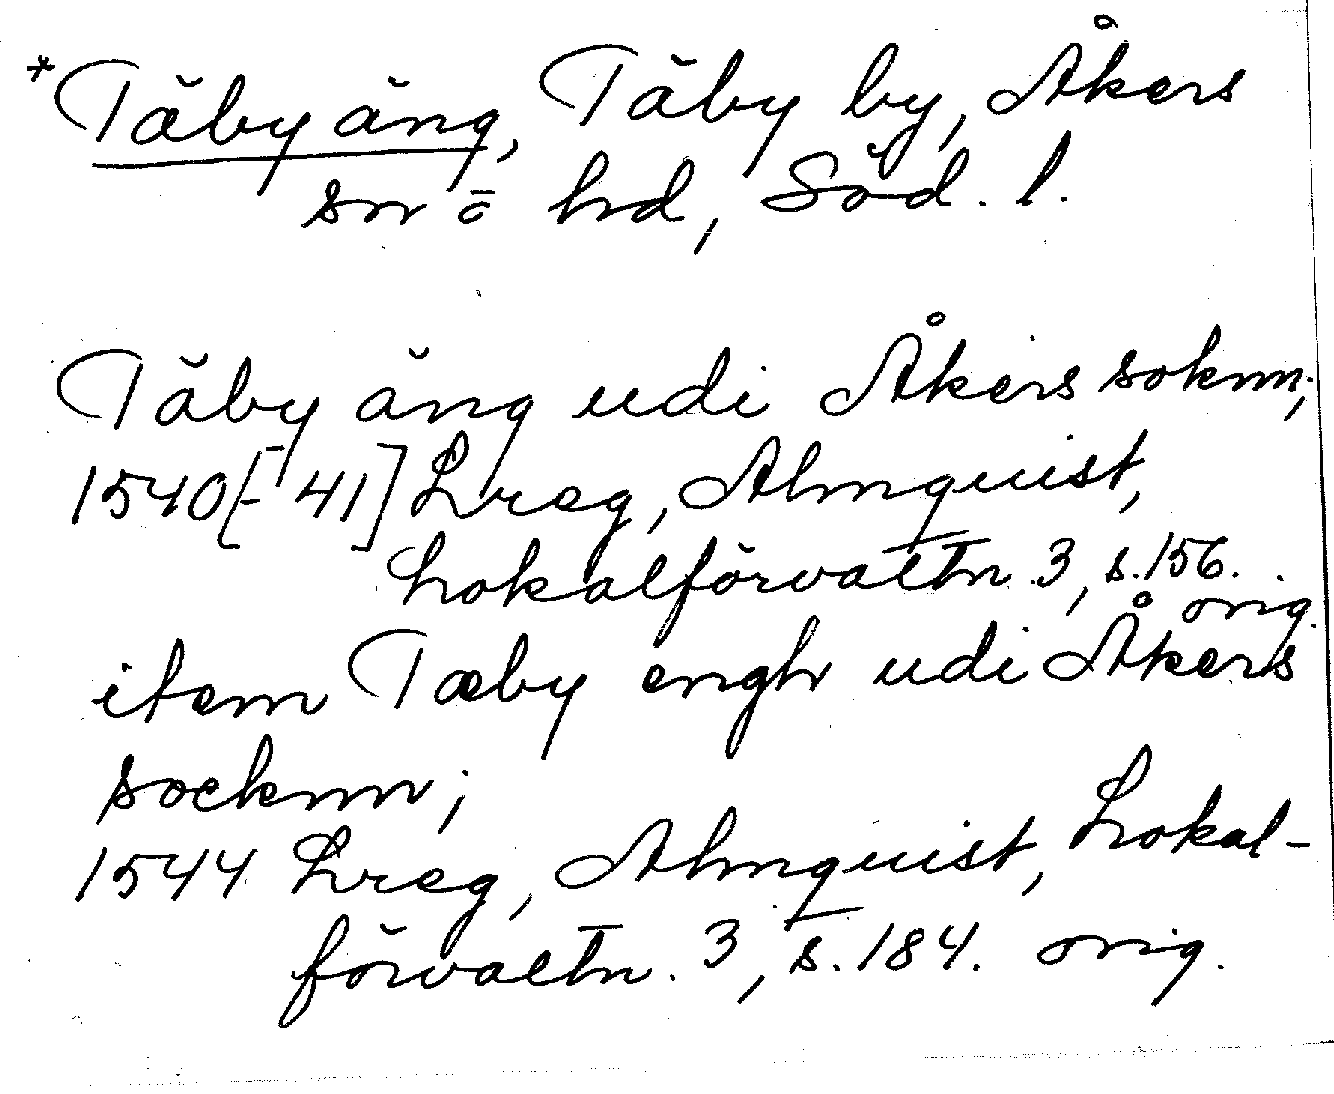 *Täby äng, Täby by, Åkers
sn o hd, Söd. l.
Täby äng udi Åkers soknn;
1540[-41] Lreg, Almquist,
Lokalförvaltn. 3, s. 156.
orig.
item Tæby engh udi Åkers
socknn;
1544 Lreg, Almquist, Lokal-
förvaltn. 3, s. 184. orig.